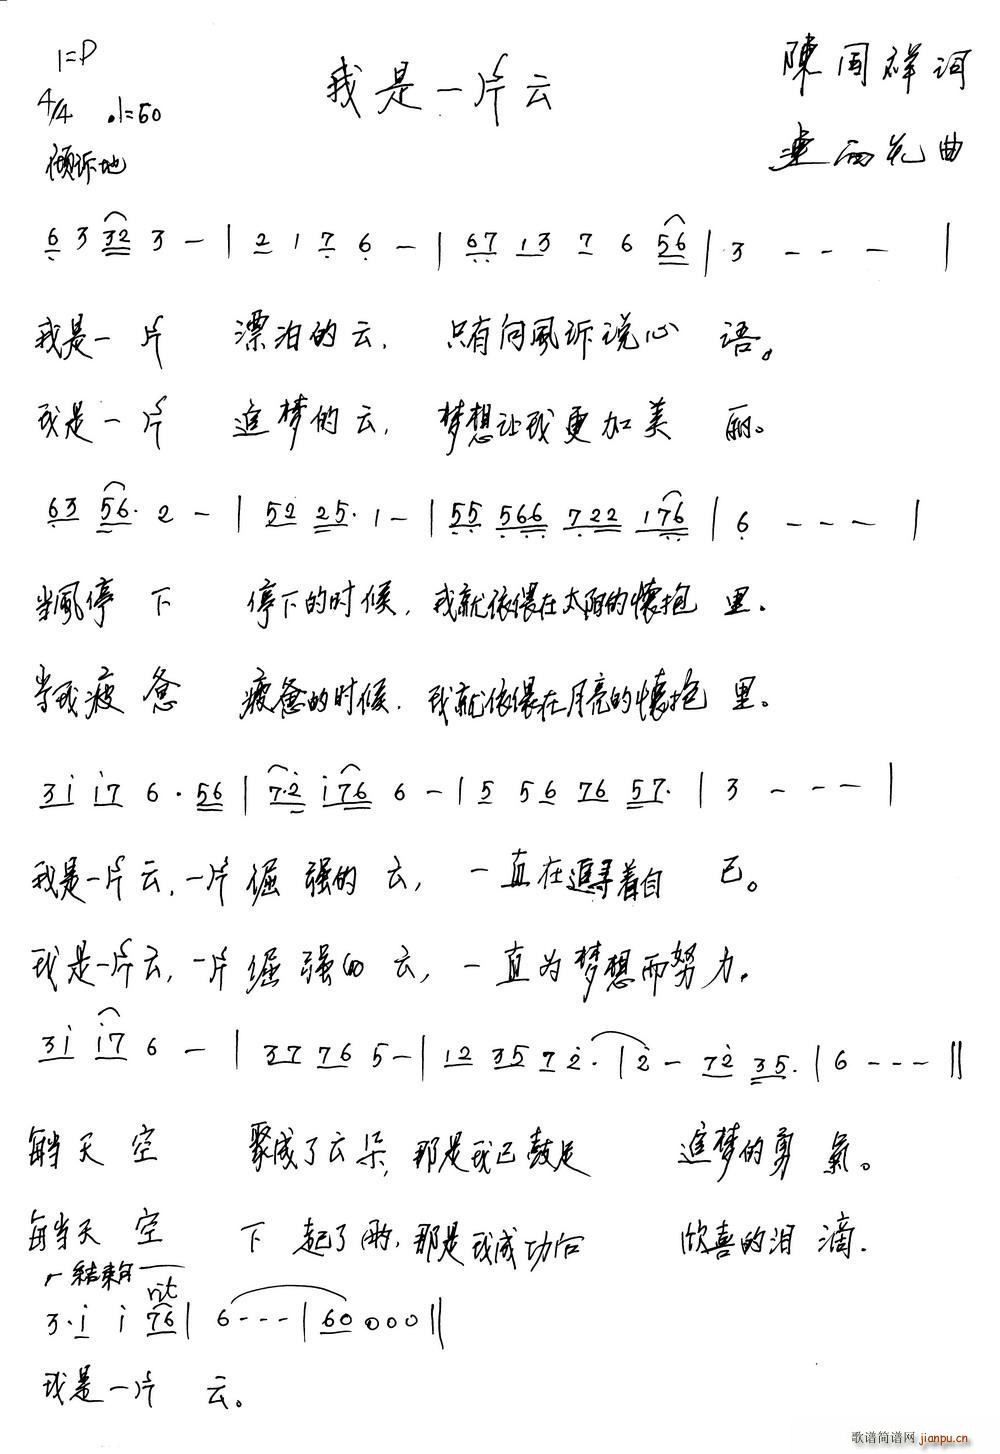 1=D
我是一片云
陳国祥词
4/4 ♩=60
曲
倾诉地
6 3 32 3 - | 2 1 7 6 - | 67 13 7 6 56 | 3 - - - |
我是一片 漂泊的云, 只有向風诉说心 语。
我是一片 追梦的云, 梦想让我更加美 丽。
63 56· 2 - | 52 25· 1 - | 55 566 722 176 | 6 - - - |
当風停 下 停下的时候, 我就依偎在太阳的懷抱 里。
当我疲 惫 疲惫的时候. 我就依偎在月亮的懷抱 里。
3i i7 6 · 56 | 7·2 i76 6 - | 5 56 76 57· | 3 - - - |
我是一片云,一片倔 强的 云, 一直在追寻着自 己。
我是一片云,一片倔 强的 云, 一直为梦想而努力.
3i i7 6 - | 37 76 5 - | 12 35 7 2· | 2 - 72 35· | 6 - - - ‖
每当天 空 聚成了云朵, 那是我已鼓足 追梦的勇 氣。
每当天 空 下 起了雨, 那是我成功后 欣喜的泪 滴.
结束句 rit
3·i i 76 | 6 - - - | 60 0 0 0 ‖
我是一片 云。
歌谱简谱网
jianpu.cn